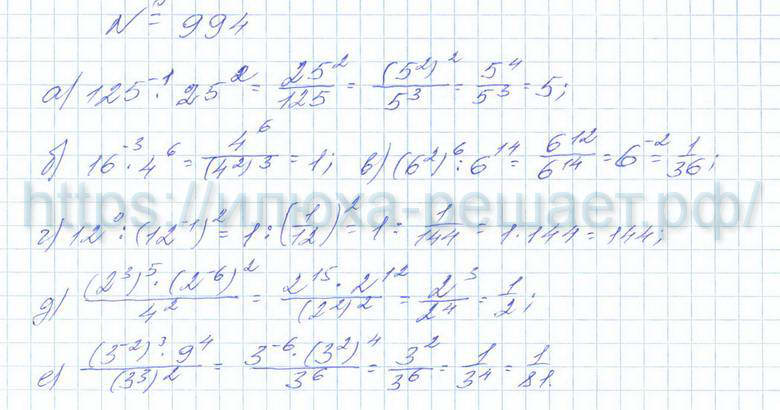 № 994
а) 125⁻¹ · 25² = 25²/125 = (5²)²/5³ = 5⁴/5³ = 5;
б) 16⁻³ · 4⁶ = 4⁶/(4²)³ = 1; в) (6²)⁶ : 6¹⁴ = 6¹²/6¹⁴ = 6⁻² = 1/36;
https://илюха-решает.рф/
г) 12⁰ : (12⁻¹)² = 1 : (1/12)² = 1 : 1/144 = 1 · 144 = 144;
д) (2³)⁵ · (2⁻⁶)²/4² = 2¹⁵ · 2¹²/(2²)² = 2³/2⁴ = 1/2;
е) (3⁻²)³ · 9⁴/(3³)² = 3⁻⁶ · (3²)⁴/3⁶ = 3²/3⁶ = 1/3⁴ = 1/81.